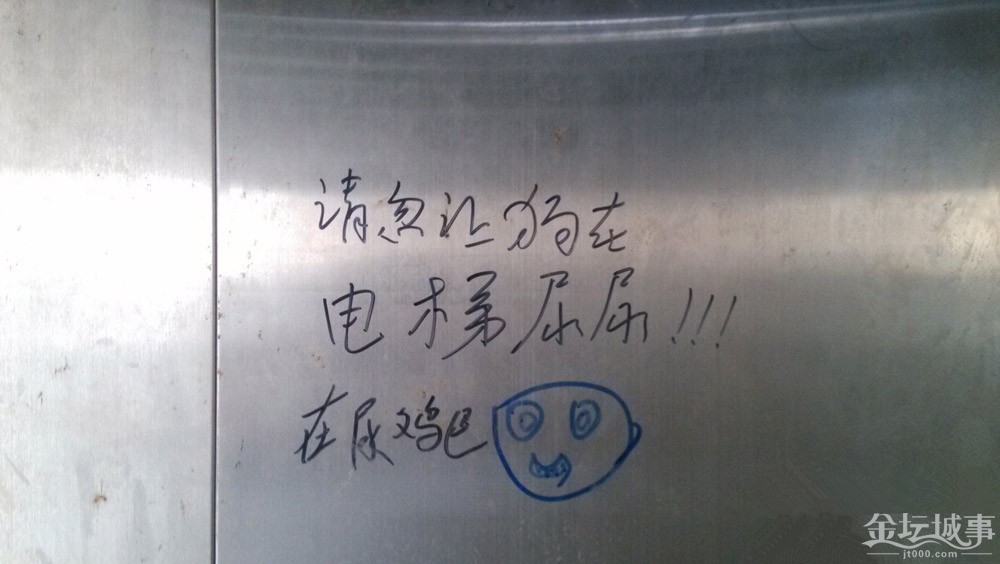 请忽让狗在
电梯尿尿!!!
在尿鸡巴
金坛城事
jt000.com